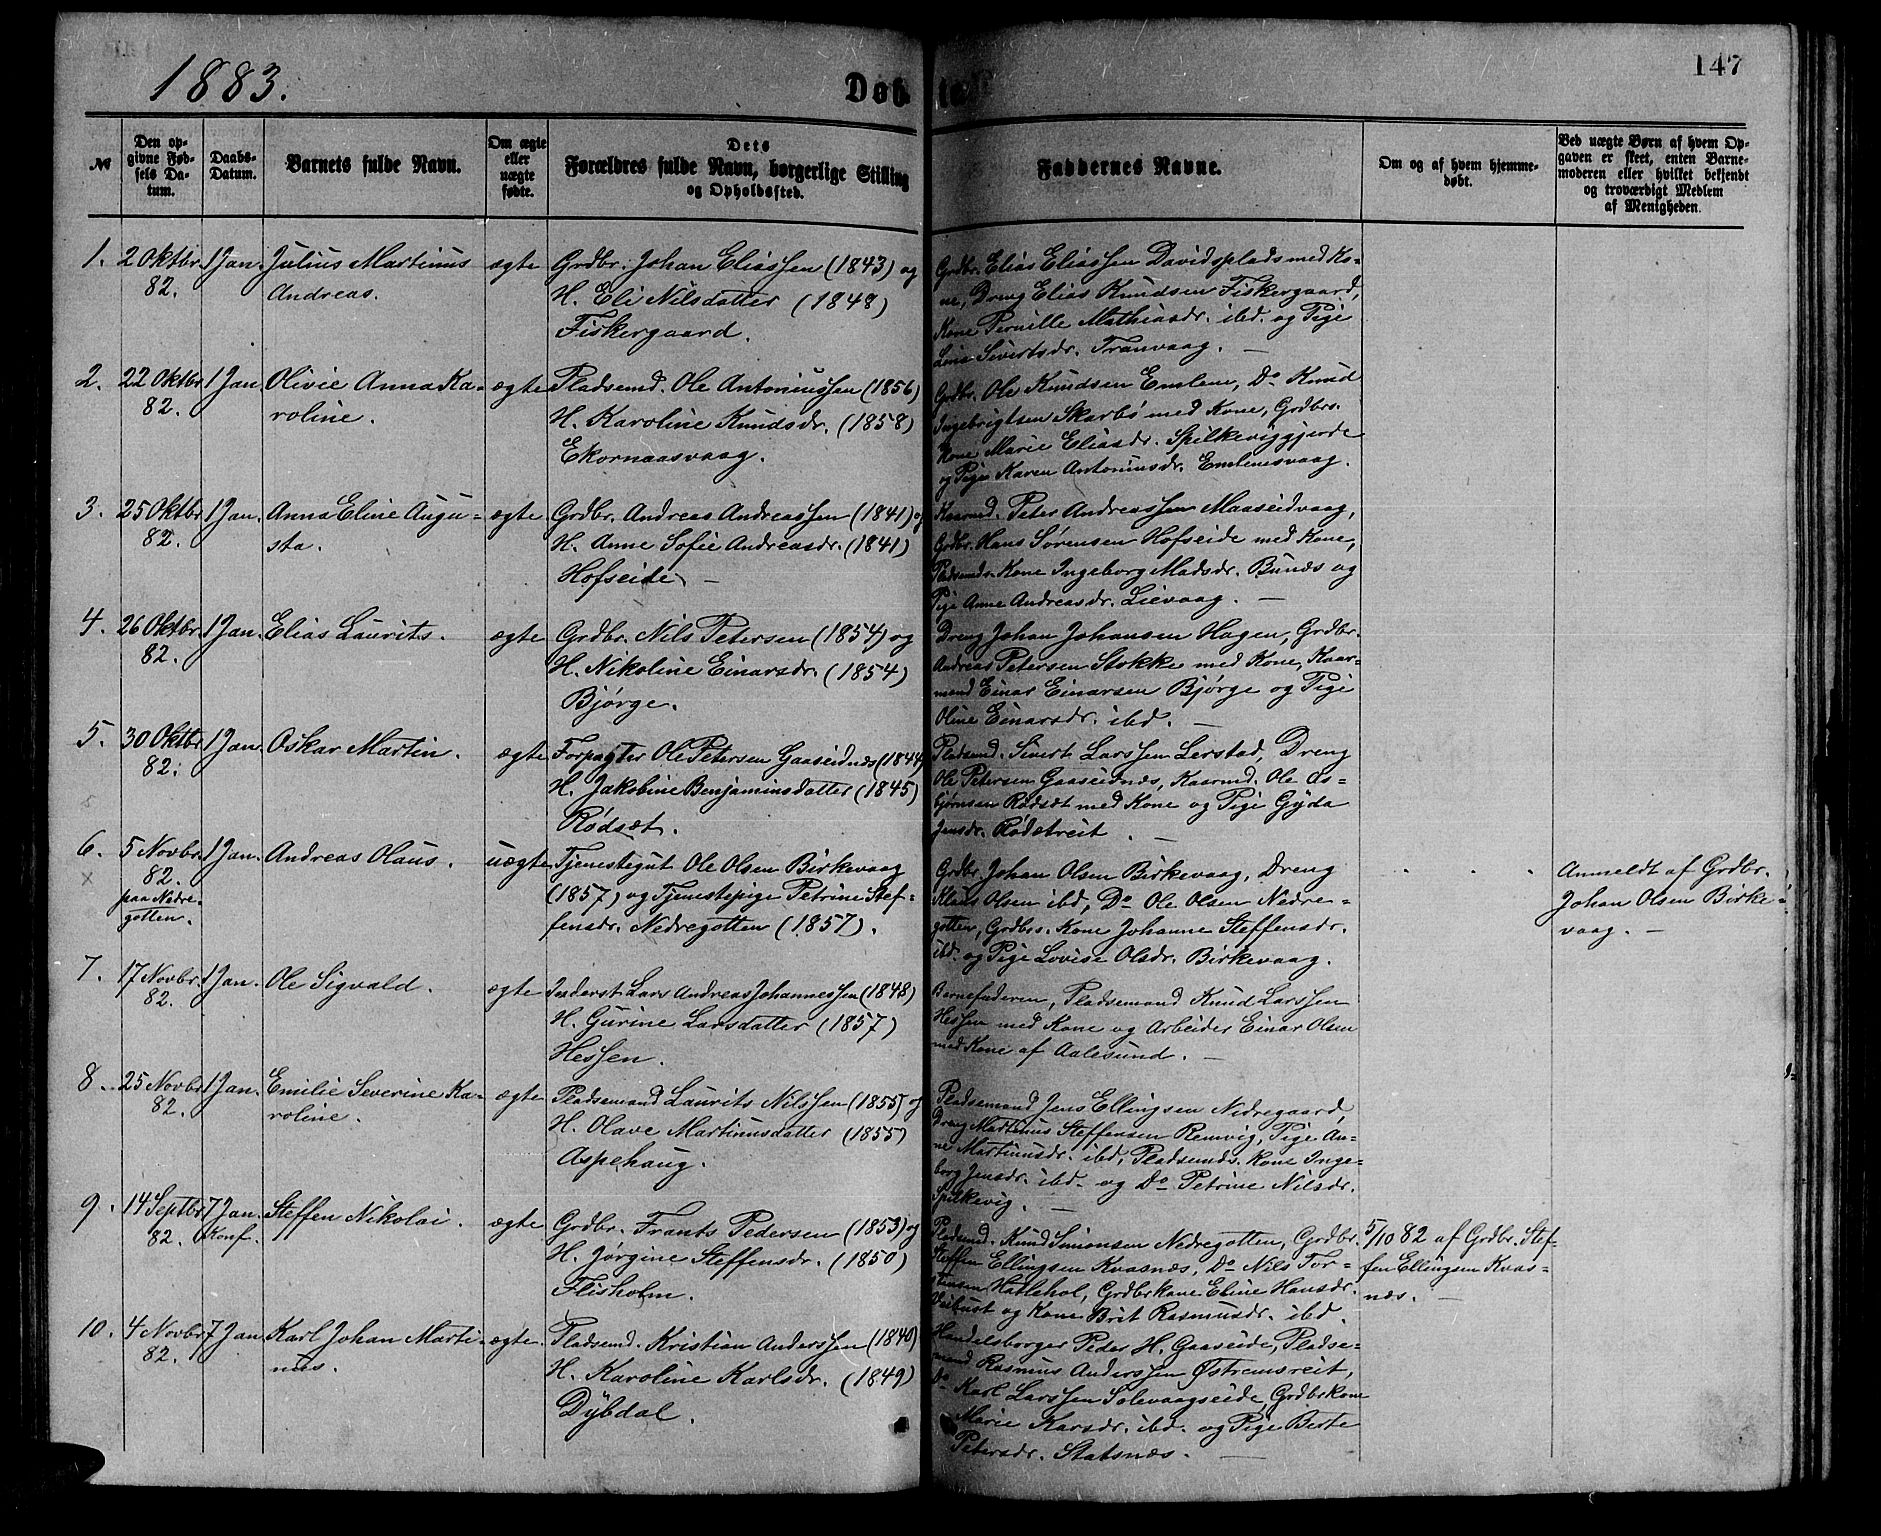 1883.
Døb
147
№
Den op-
givne Fød-
sels Da-
tum.
Daabs-
Datum.
Barnets fulde Navn.
Om ægte
eller
uægte
fødte.
Dets
Forældres fulde Navn, borgerlige Stilling
og Opholdssted.
Faddernes Navne.
Om og af hvem hjemme-
døbt.
Ved uægte Børn af hvem Op-
gaven er skeet, enten Barne-
moderen eller hvilket bekjendt
og troværdigt Medlem
af Menigheden.
1.
2 Oktbr.
82.
1 Jan.
Julius Martinus
Andreas.
ægte
Grdbr. Johan Eliassen (1843) og
H. Eli Nilsdatter (1848)
Fiskergaard.
Grdbr. Elias Eliassen Davidsplads med Ko-
ne, Dreng Elias Knudsen Fiskergaard,
Kone Pernille Mathiasdr. ibd. og Pige
Lina Sivertsdr. Tranvaag. —
2.
22 Oktbr.
82.
1 Jan
Olivie Anna Ka-
roline.
ægte
Pladsemd. Ole Antoniussen (1856)
H. Karoline Knudsdr. (1858)
Ekornaasvaag.
Grdbr. Ole Knudsen Emlem, Do Knud
Ingebrigtsen Skarbø med Kone, Grdbrs.
Kone Marie Eliasdr. Spilkeviggjerde
og Pige Karen Antoniusdr. Emlemsvaag.
3.
25 Oktbr
82.
1 Jan.
Anna Eline Augu-
sta.
ægte
Grdbr. Andreas Andreassen (1841) og
H. Anne Sofie Andreasdr. (1841)
Hofseide. —
Kaarmd. Peter Andreassen Maaseidvaag,
Grdbr. Hans Sørensen Hofseide med Kone,
Pladsemds. Kone Ingeborg Madsdr. Bunæs og
Pige Anne Andreasdr. Lievaag. —
4.
26 Oktbr.
82.
1 Jan.
Elias Laurits.
ægte
Grdbr. Nils Petersen (1854) og
H. Nikoline Einarsdr. (1854)
Bjørge.
Dreng Johan Johansen Hagen, Grdbr.
Andreas Petersen Stokke med Kone, Kaar-
mand Einar Einarsen Bjørge og Pige
Oline Einarsdr. ibd. —
5.
30 Oktbr
82.
1 Jan.
Oskar Martin.
ægte
Forpagter Ole Petersen Gaaseidnæs (1844)
H. Jakobine Benjaminsdatter (1845)
Rødsæt.
Pladsemd. Sivert Larssen Lerstad, Dreng
Ole Petersen Gaaseidnæs, Kaarmd. Ole As-
bjørnsen Rødsæt med Kone og Pige Gyda
Jensdr. Rødstreit. —
6.
5 Novbr.
82.
paa Nedre-
gotten.
1 Jan.
Andreas Olaus.
uægte
Tjenestegut Ole Olsen Birkevaag
(1857) og Tjenestepige Petrine Stef-
fensdr. Nedregotten (1857).
Grdbr. Johan Olsen Birkevaag, Dreng
Klaus Olsen ibd, Do Ole Olsen Nedre-
gotten, Grdbrs. Kone Johanne Steffensdr.
ibd. og Pige Lovise Olsdr. Birkevaag.
Anmeldt af Grdbr.
Johan Olsen Birke-
vaag. —
7.
17 Novbr.
82.
1 Jan.
Ole Sigvald.
ægte
Inderst Lars Andreas Johannessen (1848)
H. Gurine Larsdatter (1857)
Hessen.
Barnefaderen, Pladsemand Knud Larssen
Hessen med Kone og Arbeider Einar Olsen
med Kone af Aalesund. —
8.
25 Novbr
82.
1 Jan.
Emilie Severine Ka-
roline.
ægte
Pladsemand Laurits Nilssen (1855) og
H. Olave Martinusdatter (1855)
Aspehaug.
Pladsemand Jens Ellingsen Nedregaard,
Dreng Martinus Steffensen Remvig, Pige An-
ne Martinusdr. ibd, Pladsemds. Kone Inge-
borg Jensdr. ibd. og Do Petrine Nilsdr.
Spilkevig. —
9.
14 Septbr
82.
7 Jan.
Konf.
Steffen Nikolai.
ægte
Grdbr. Frants Pedersen (1853) og
H. Jørgine Steffensdr. (1850)
Flisholm.
Pladsemd. Knud Simonsen Nedregotten, Grdbr.
Steffen Ellingsen Kvasnæs, Do Nils Tor-
stensen Hatlehol, Grdbrkone Eline Hansdr.
Veibust og Kone Brit Rasmusdr. ibd.
5/10 82 af Grdbr. Stef-
fen Ellingsen Kvas-
næs. —
10.
4 Novbr
82.
7 Jan
Karl Johan Marti-
nus.
ægte
Pladsemd. Kristian Anderssen (1840)
H. Karoline Karlsdr. (1849)
Dybdal.
Handelsborger Peder H. Gaaseide, Pladse-
mand Rasmus Anderssen Østremsreit,
Do Karl Larssen Solevaagseide, Grdbrkone
Marie Karsdr. ibd. og Pige Berte
Petersdr. Statsnæs. —